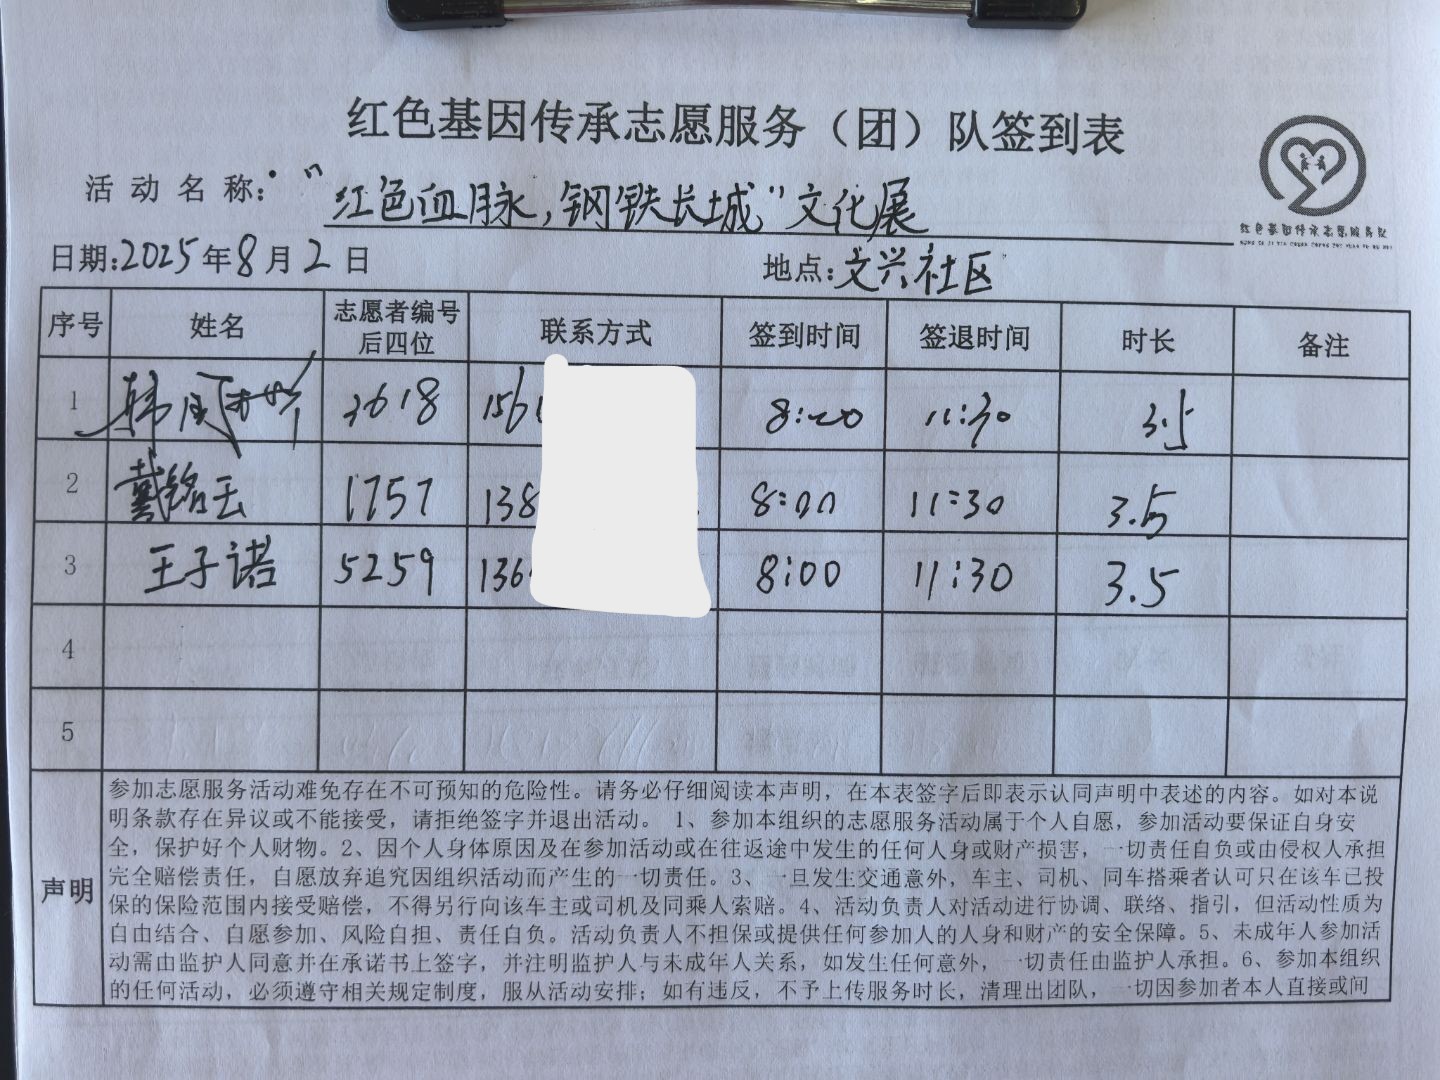 红色基因传承志愿服务（团）队签到表
活动名称：“红色血脉，钢铁长城”文化展
红色基因传承志愿服务队
日期：2025年8月2日 地点：文兴社区
序号 姓名 志愿者编号后四位 联系方式 签到时间 签退时间 时长 备注
1 韩 3618 156 8:00 11:30 3.5
2 戴铭玉 1757 138 8:00 11:30 3.5
3 王子诺 5259 136 8:00 11:30 3.5
4
5
声明
参加志愿服务活动难免存在不可预知的危险性。请务必仔细阅读本声明，在本表签字后即表示认同声明中表述的内容。如对本说
明条款存在异议或不能接受，请拒绝签字并退出活动。 1、参加本组织的志愿服务活动属于个人自愿，参加活动要保证自身安
全，保护好个人财物。2、因个人身体原因及在参加活动或在往返途中发生的任何人身或财产损害，一切责任自负或由侵权人承担
完全赔偿责任，自愿放弃追究因组织活动而产生的一切责任。3、一旦发生交通意外，车主、司机、同车搭乘者认可只在该车已投
保的保险范围内接受赔偿，不得另行向该车主或司机及同乘人索赔。4、活动负责人对活动进行协调、联络、指引，但活动性质为
自由结合、自愿参加、风险自担、责任自负。活动负责人不担保或提供任何参加人的人身和财产的安全保障。5、未成年人参加活
动需由监护人同意并在承诺书上签字，并注明监护人与未成年人关系，如发生任何意外，一切责任由监护人承担。6、参加本组织
的任何活动，必须遵守相关规定制度，服从活动安排；如有违反，不予上传服务时长，清理出团队，一切因参加者本人直接或间